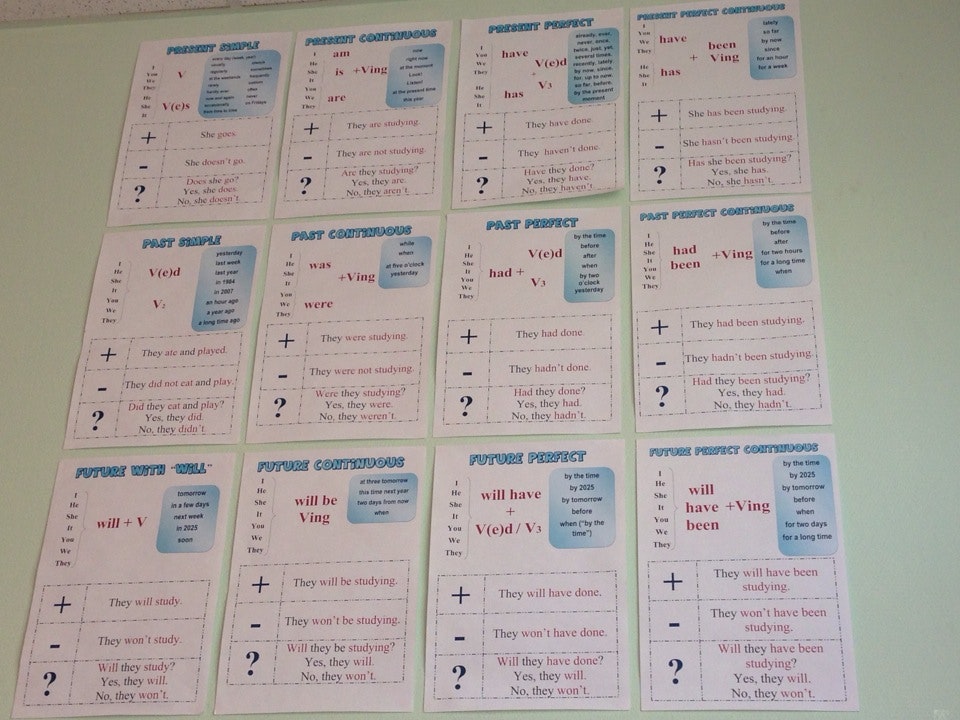 PRESENT SIMPLE
I
You
We
They
He
She
It
V
V(e)s
every day (week, year)
usually
always
regularly
sometimes
at the weekends
frequently
rarely
seldom
hardly ever
often
now and again
never
occasionally
on Fridays
from time to time
+
She goes.
-
She doesn't go.
?
Does she go?
Yes, she does.
No, she doesn't.
PRESENT CONTINUOUS
I
He
She
It
You
We
They
am
is +Ving
are
now
right now
at the moment
Look!
Listen!
at the present time
this year
+
They are studying.
-
They are not studying.
?
Are they studying?
Yes, they are.
No, they aren't.
PRESENT PERFECT
I
You
We
They
He
She
It
have
V(e)d
+
V3
has
already, ever,
never, once,
twice, just, yet,
several times,
recently, lately,
by now, since,
for, up to now,
so far, before,
by the present
moment
+
They have done.
-
They haven't done.
?
Have they done?
Yes, they have.
No, they haven't.
PRESENT PERFECT CONTINUOUS
I
You
We
They
He
She
It
have
been
+ Ving
has
lately
so far
by now
since
for an hour
for a week
+
She has been studying.
-
She hasn't been studying.
?
Has she been studying?
Yes, she has.
No, she hasn't.
PAST SIMPLE
I
He
She
It
You
We
They
V(e)d
V2
yesterday
last week
last year
in 1984
in 2007
an hour ago
a year ago
a long time ago
+
They ate and played.
-
They did not eat and play.
?
Did they eat and play?
Yes, they did.
No, they didn't.
PAST CONTINUOUS
I
He
She
It
You
We
They
was
+Ving
were
while
when
at five o'clock
yesterday
+
They were studying.
-
They were not studying.
?
Were they studying?
Yes, they were.
No, they weren't.
PAST PERFECT
I
He
She
It
You
We
They
V(e)d
had +
V3
by the time
before
after
when
by two
o'clock
yesterday
+
They had done.
-
They hadn't done.
?
Had they done?
Yes, they had.
No, they hadn't.
PAST PERFECT CONTINUOUS
I
He
She
It
You
We
They
had
been +Ving
by the time
before
after
for two hours
for a long time
when
+
They had been studying.
-
They hadn't been studying.
?
Had they been studying?
Yes, they had.
No, they hadn't.
FUTURE WITH "WILL"
I
He
She
It
You
We
They
will + V
tomorrow
in a few days
next week
in 2025
soon
+
They will study.
-
They won't study.
?
Will they study?
Yes, they will.
No, they won't.
FUTURE CONTINUOUS
I
He
She
It
You
We
They
will be
Ving
at three tomorrow
this time next year
two days from now
when
+
They will be studying.
-
They won't be studying.
?
Will they be studying?
Yes, they will.
No, they won't.
FUTURE PERFECT
I
He
She
It
You
We
They
will have
+
V(e)d / V3
by the time
by 2025
by tomorrow
before
when ("by the
time")
+
They will have done.
-
They won't have done.
?
Will they have done?
Yes, they will.
No, they won't.
FUTURE PERFECT CONTINUOUS
I
He
She
It
You
We
They
will
have +Ving
been
by the time
by 2025
by tomorrow
before
when
for two days
for a long time
+
They will have been
studying.
-
They won't have been
studying.
?
Will they have been
studying?
Yes, they will.
No, they won't.